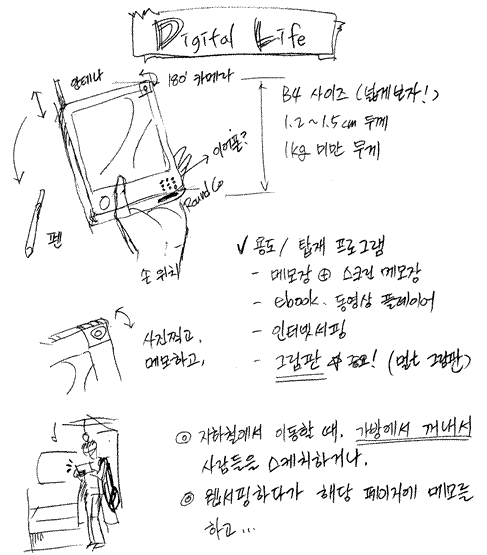 Digital Life
안테나
180° 카메라
B4 사이즈 (넓게보자!)
1.2~1.5cm 두께
1kg 미만 무게
이어폰?
Round Co
펜
손 위치
✓ 용도/ 탑재 프로그램
- 메모장 ⊕ 스크린 메모장
- ebook. 동영상 플레이어
- 인터넷서핑
- 그림판 ☆ 중요! (멀는 그림판)
사진찍고,
메모하고,
◎ 지하철에서 이동할 때. 가방에서 꺼내서
사람들을 스케치하거나.
◎ 웹서핑하다가 해당 페이지에 메모를
하고...